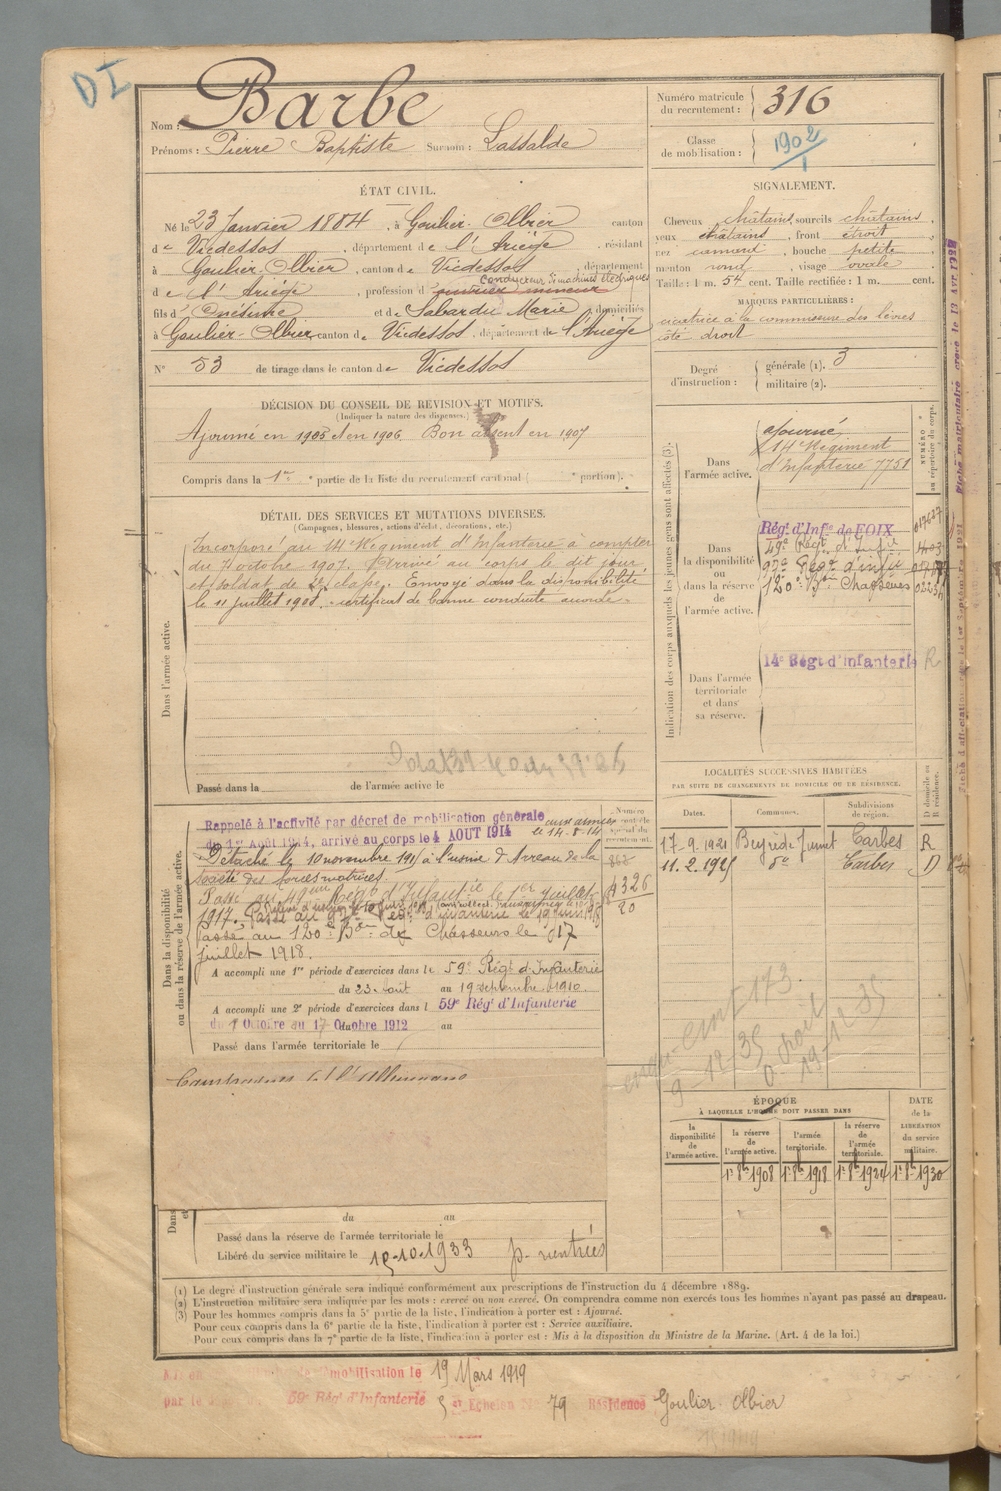 DI
Nom : Barbe
Prénoms : Pierre Baptiste Surnom : Lassalde
Numéro matricule du recrutement : 316
Classe de mobilisation : 1902/1
ÉTAT CIVIL.
Né le 23 Janvier 1884, à Goulier-Olbier canton
de Vicdessos, département de l'Ariège, résidant
à Goulier-Olbier, canton de Vicdessos, département
de l'Ariège, profession d' ouvrier mineur conducteur de machines électriques
fils d' Onésime et de Sabardu Marie, domiciliés
à Goulier-Olbier, canton de Vicdessos, département de l'Ariège
N° 53 de tirage dans le canton de Vicdessos
SIGNALEMENT.
Cheveux châtains, sourcils châtains,
yeux châtains, front étroit
nez camard, bouche petite
menton rond, visage ovale
Taille : 1 m. 54 cent. Taille rectifiée : 1 m. cent.
MARQUES PARTICULIÈRES :
cicatrice à la commissure des lèvres
côté droit
Degré d'instruction :
générale (1). 3
militaire (2).
DÉCISION DU CONSEIL DE REVISION ET MOTIFS.
(Indiquer la nature des dispenses.)
Ajourné en 1905 et en 1906. Bon absent en 1907
Compris dans la 1re partie de la liste du recrutement cantonal ( e portion).
DÉTAIL DES SERVICES ET MUTATIONS DIVERSES.
(Campagnes, blessures, actions d'éclat, décorations, etc.)
Dans l'armée active.
Incorporé au 14e Régiment d'Infanterie à compter
du 7 octobre 1907. Arrivé au corps le dit jour
et soldat de 2e classe. Envoyé dans la disponibilité
le 11 juillet 1908. certificat de bonne conduite accordé.
Passé dans la de l'armée active le
Indication des corps auxquels les jeunes gens sont affectés (3).
NUMÉRO au répertoire du corps.
Dans l'armée active.
ajourné
14e Régiment
d'Infanterie 7751
Dans la disponibilité ou dans la réserve de l'armée active.
Régt d'Infie de FOIX
49e Régt d'Infie
97e Régt d'infie
120e Bon Chasseurs
Dans l'armée territoriale et dans sa réserve.
14e Régt d'Infanterie R
LOCALITÉS SUCCESSIVES HABITÉES
PAR SUITE DE CHANGEMENTS DE DOMICILE OU DE RÉSIDENCE.
Dates. Communes. Subdivisions de région. D domicile ou R résidence.
17-9-1921 Beyrède Jumet Tarbes R
11.2.1925 do Tarbes D
Dans la disponibilité ou dans la réserve de l'armée active.
Numéro du contrôle spécial du recrutement.
Rappelé à l'activité par décret de mobilisation générale
du 1er Août 1914, arrivé au corps le 4 AOUT 1914 aux armées le 14-8-14
Détaché le 10 novembre 1915 à l'usine d'Arreau de la
Société des forces motrices.
Passé au 49ème Régt d'Infantie le 1er juillet
1917. Passé au 97e Régt d'infanterie le 19 juin 1918
Passé au 120e Bon de Chasseurs le 17
juillet 1918.
A accompli une 1re période d'exercices dans le 59e Régt d'Infanterie
du 23 août au 19 septembre 1910.
A accompli une 2e période d'exercices dans l 59e Régt d'Infanterie
du 1er Octobre au 17 Octobre 1912 au
Passé dans l'armée territoriale le
Campagnes
du au
Passé dans la réserve de l'armée territoriale le
Libéré du service militaire le 15-10-1933
ÉPOQUE
À LAQUELLE L'HOMME DOIT PASSER DANS
la disponibilité de l'armée active.
la réserve de l'armée active.
l'armée territoriale.
la réserve de l'armée territoriale.
DATE de la LIBÉRATION du service militaire.
1er 8bre 1908 1er 8bre 1918 1er 8bre 1924 1er 8bre 1930
(1) Le degré d'instruction générale sera indiqué conformément aux prescriptions de l'instruction du 4 décembre 1889.
(2) L'instruction militaire sera indiquée par les mots : exercé ou non exercé. On comprendra comme non exercés tous les hommes n'ayant pas passé au drapeau.
(3) Pour les hommes compris dans la 5e partie de la liste, l'indication à porter est : Ajourné.
Pour ceux compris dans la 6e partie de la liste, l'indication à porter est : Service auxiliaire.
Pour ceux compris dans la 7e partie de la liste, l'indication à porter est : Mis à la disposition du Ministre de la Marine. (Art. 4 de la loi.)
mobilisation le 19 Mars 1919
par le 59e Régt d'Infanterie 5e Echelon N° 79 Résidence Goulier-Olbier